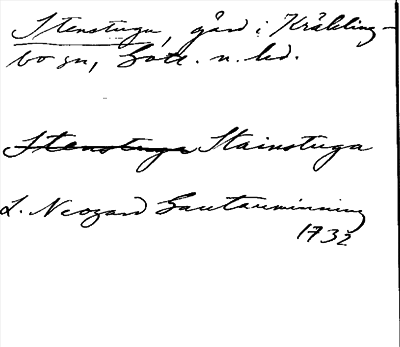 Stenstuga, gård i Kräkling-
bo sn, Gotl. n. hd.
Stenstuga Stainstuga
L. Neogard Gautauminning
1732